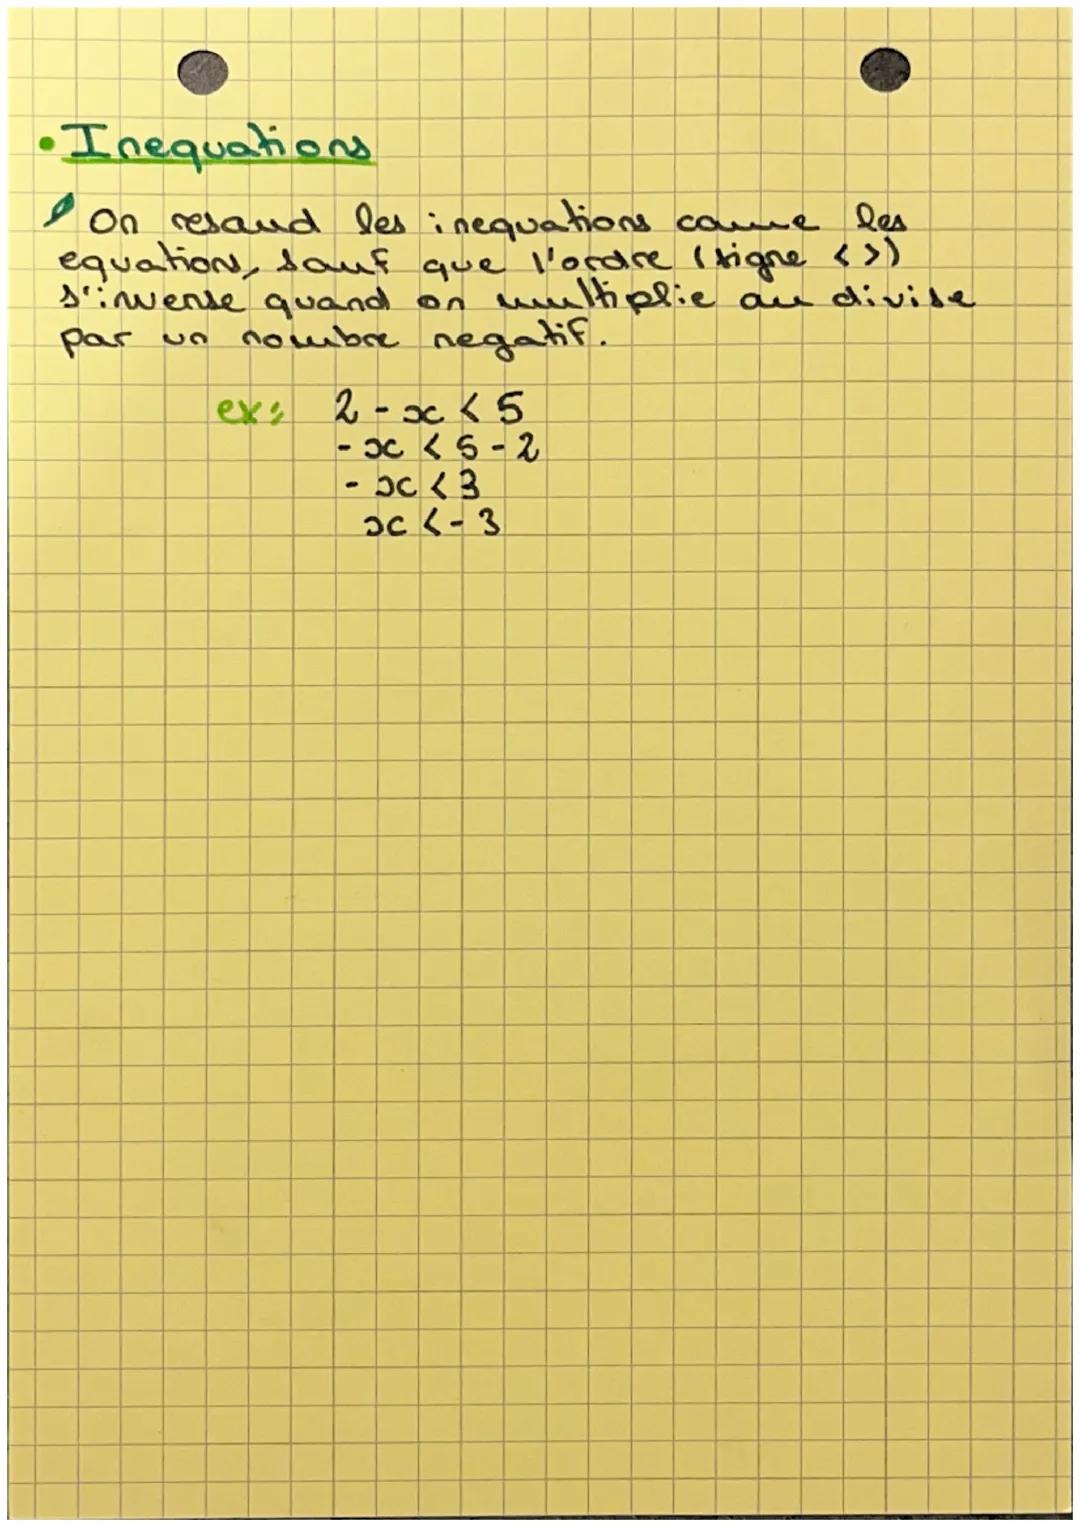 • Inequations
On resoud les inequations comme les
equations, sauf que l'ordre (signe < >)
s'inverse quand on multiplie ou divise
par un nombre negatif.
ex: 2 - x < 5
- x < 5 - 2
- x < 3
x < - 3